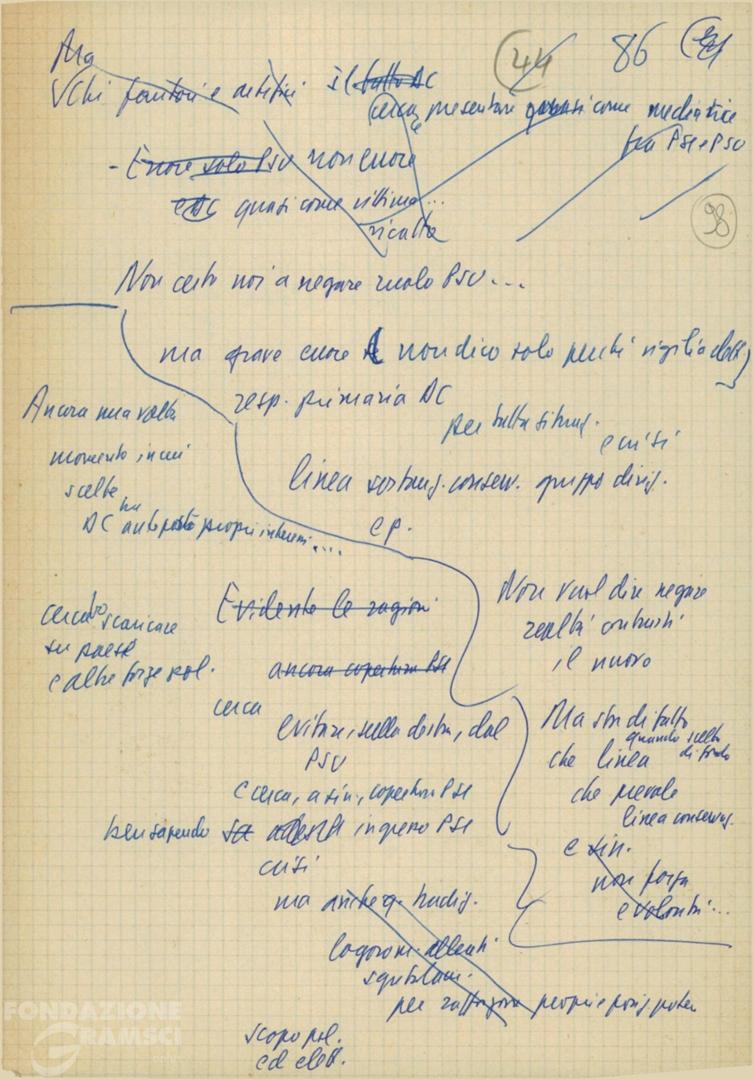 44 86
Ma
Chi fautori e artefici il fatto DC
cerca presentare quasi come mediatrice
fra PSI e PSU
- Errore solo PSU non errore
e DC quasi come vittima...
ricatto
98
Non certo noi a negare ruolo PSU...
ma grave errore non dico solo perché vigilia elett.
resp. primaria DC
per tutta situaz.
e crisi
linea conserv. gruppo dirig.
e p.
Ancora una volta
momento in cui
scelte
DC ha anteposto propri interessi....
cercato scaricare
su paese
e altre forze pol.
Evidente le ragioni
ancora copertura PSI
cerca
evitare, sulla destra, dal
PSU
e cerca, a sin, copertura PSI
ben sapendo ingresso PSI
crisi
ma anche q. tradiz.
logorare alleati
per rafforzare proprie posiz. potere
scopo pol.
ed elett.
Non vuol dire negare
realtà contrasti
il nuovo
Ma sta di fatto
quando scelte
di fondo
che linea
che prevale
linea conserv.
e sin.
non forza
e volontà...
FONDAZIONE
GRAMSCI